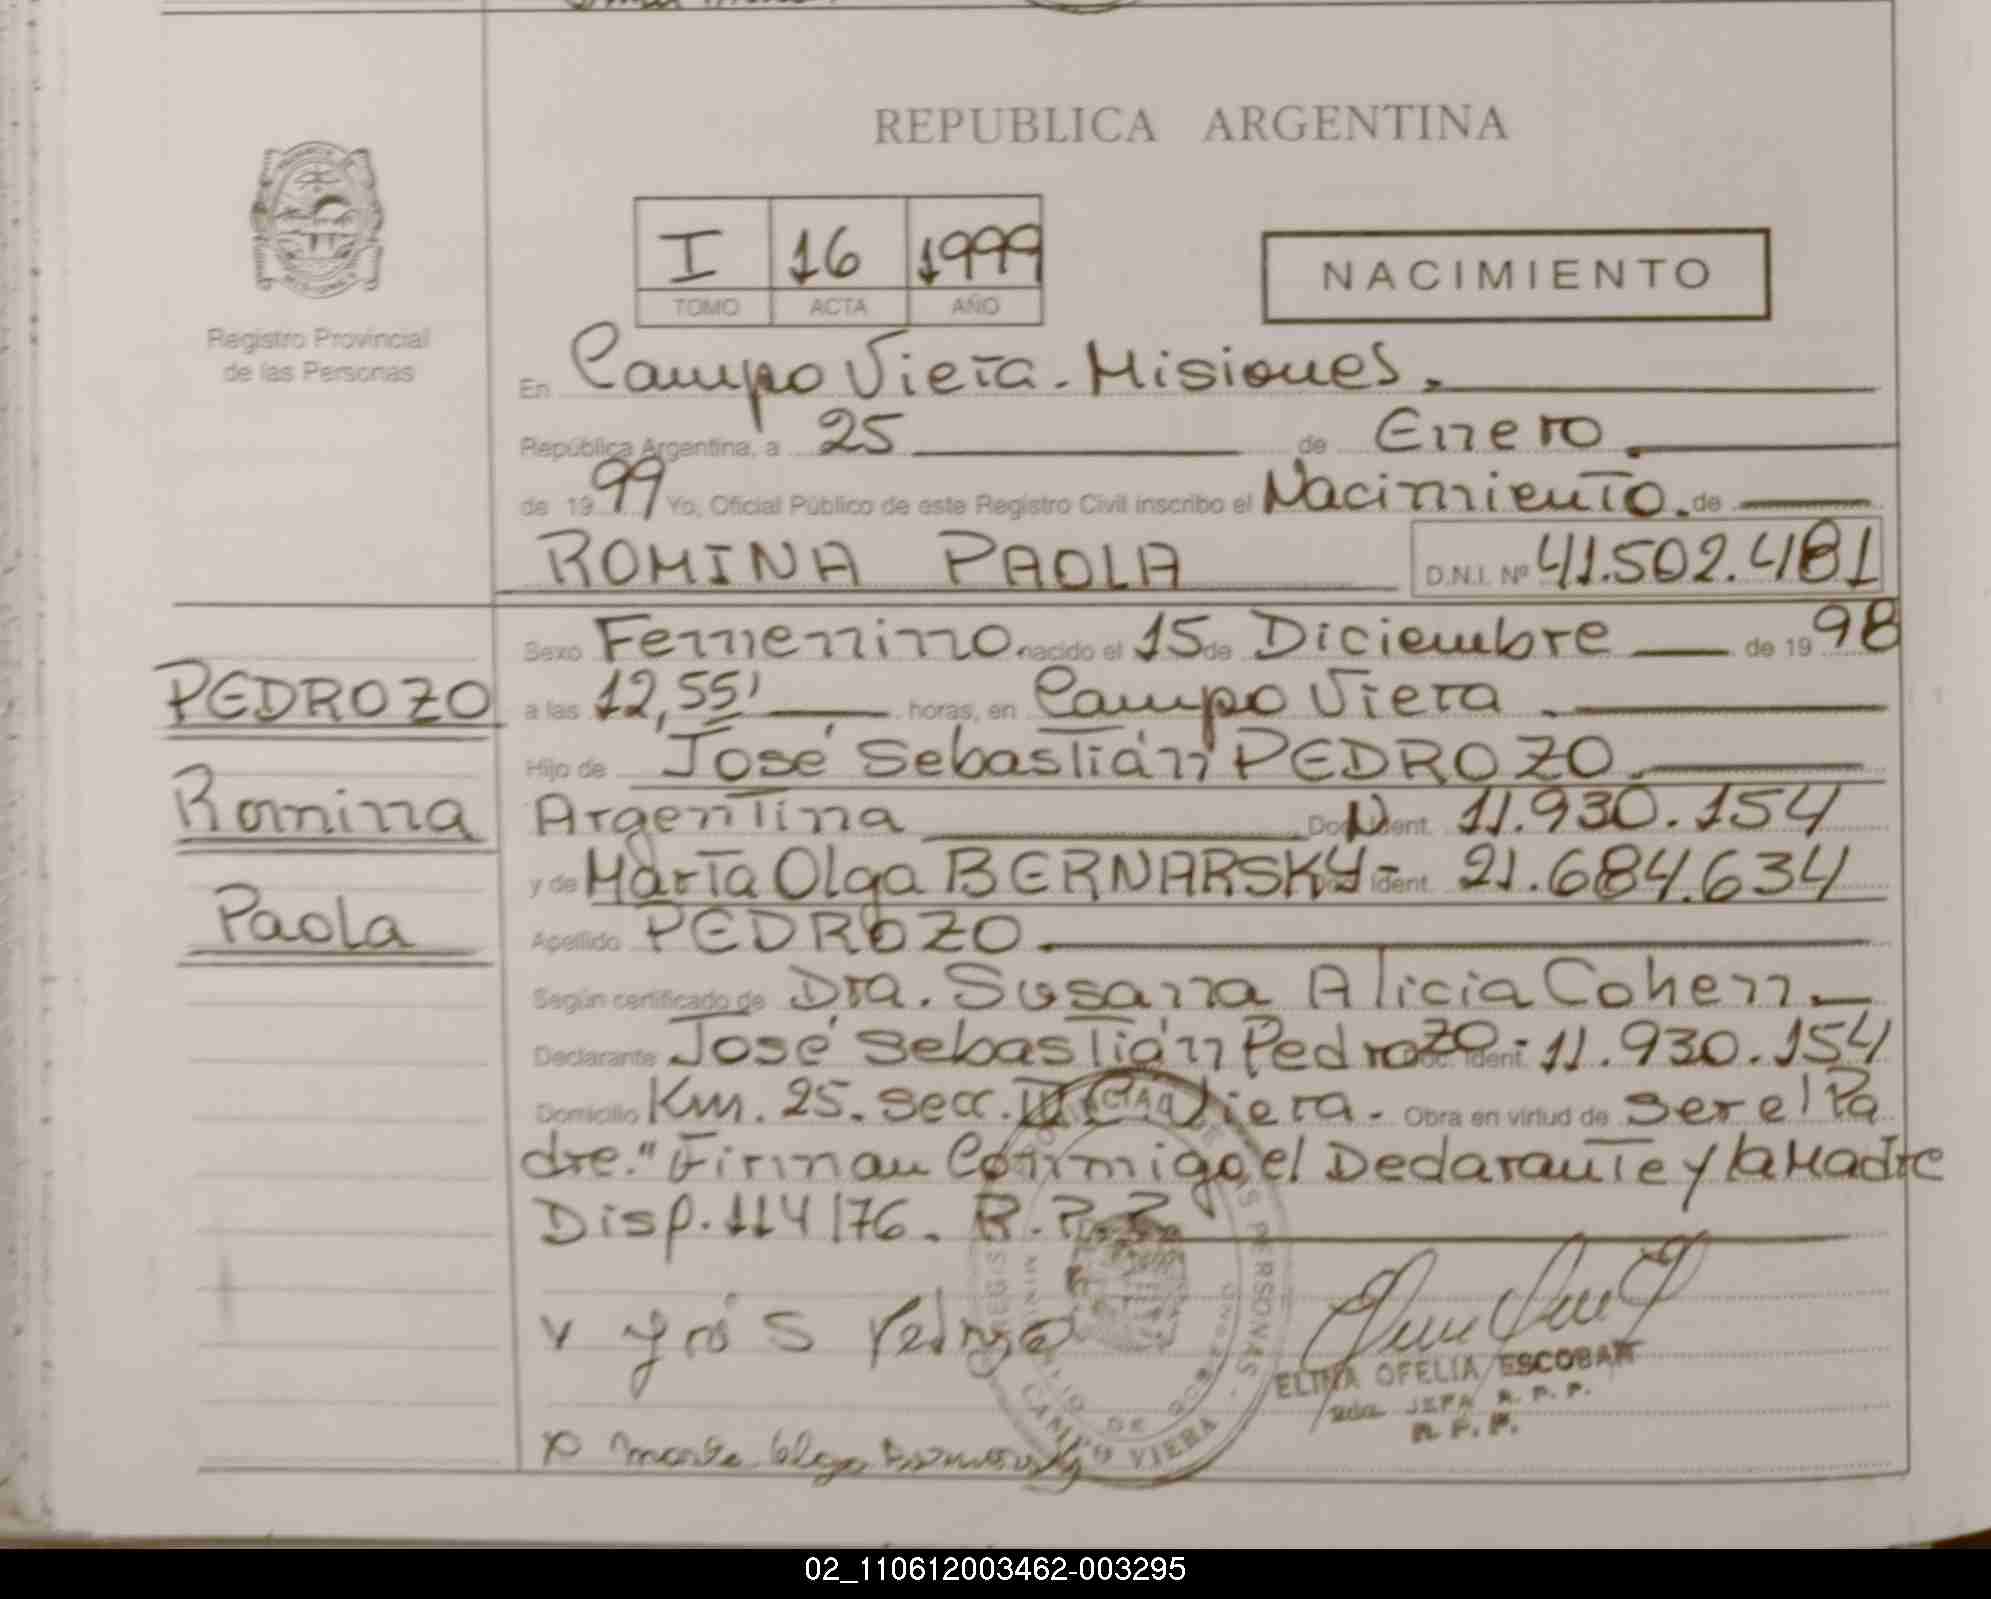 REPUBLICA ARGENTINA
I 16 1999
TOMO ACTA AÑO
NACIMIENTO
Registro Provincial
de las Personas
En Campo Viera - Misiones.
República Argentina, a 25 de Enero
de 1999 Yo, Oficial Público de este Registro Civil inscribo el Nacimiento. de
ROMINA PAOLA D.N.I. Nº 41.502.481
Sexo Femenino nacido el 15 de Diciembre de 1998
PEDROZO
Romina
Paola
a las 12,55' horas, en Campo Viera.
Hijo de José Sebastián PEDROZO.
Argentina Doc. Ident. 11.930.154
y de María Olga BERNARSKY - Doc. Ident. 21.684.634
Apellido PEDROZO.
Según certificado de Dra. Susana Alicia Cohen.
Declarante José Sebastián Pedrozo - Doc. Ident. 11.930.154
Domicilio Km. 25. secc. C. Viera. - Obra en virtud de ser el Pa
dre." Firman Conmigo el Declarante y la Madre
Disp. 114/76. R.P.P.
ELINA OFELIA ESCOBAR
JEFA R.P.P.
R.P.P.
CAMPO VIERA
02_110612003462-003295